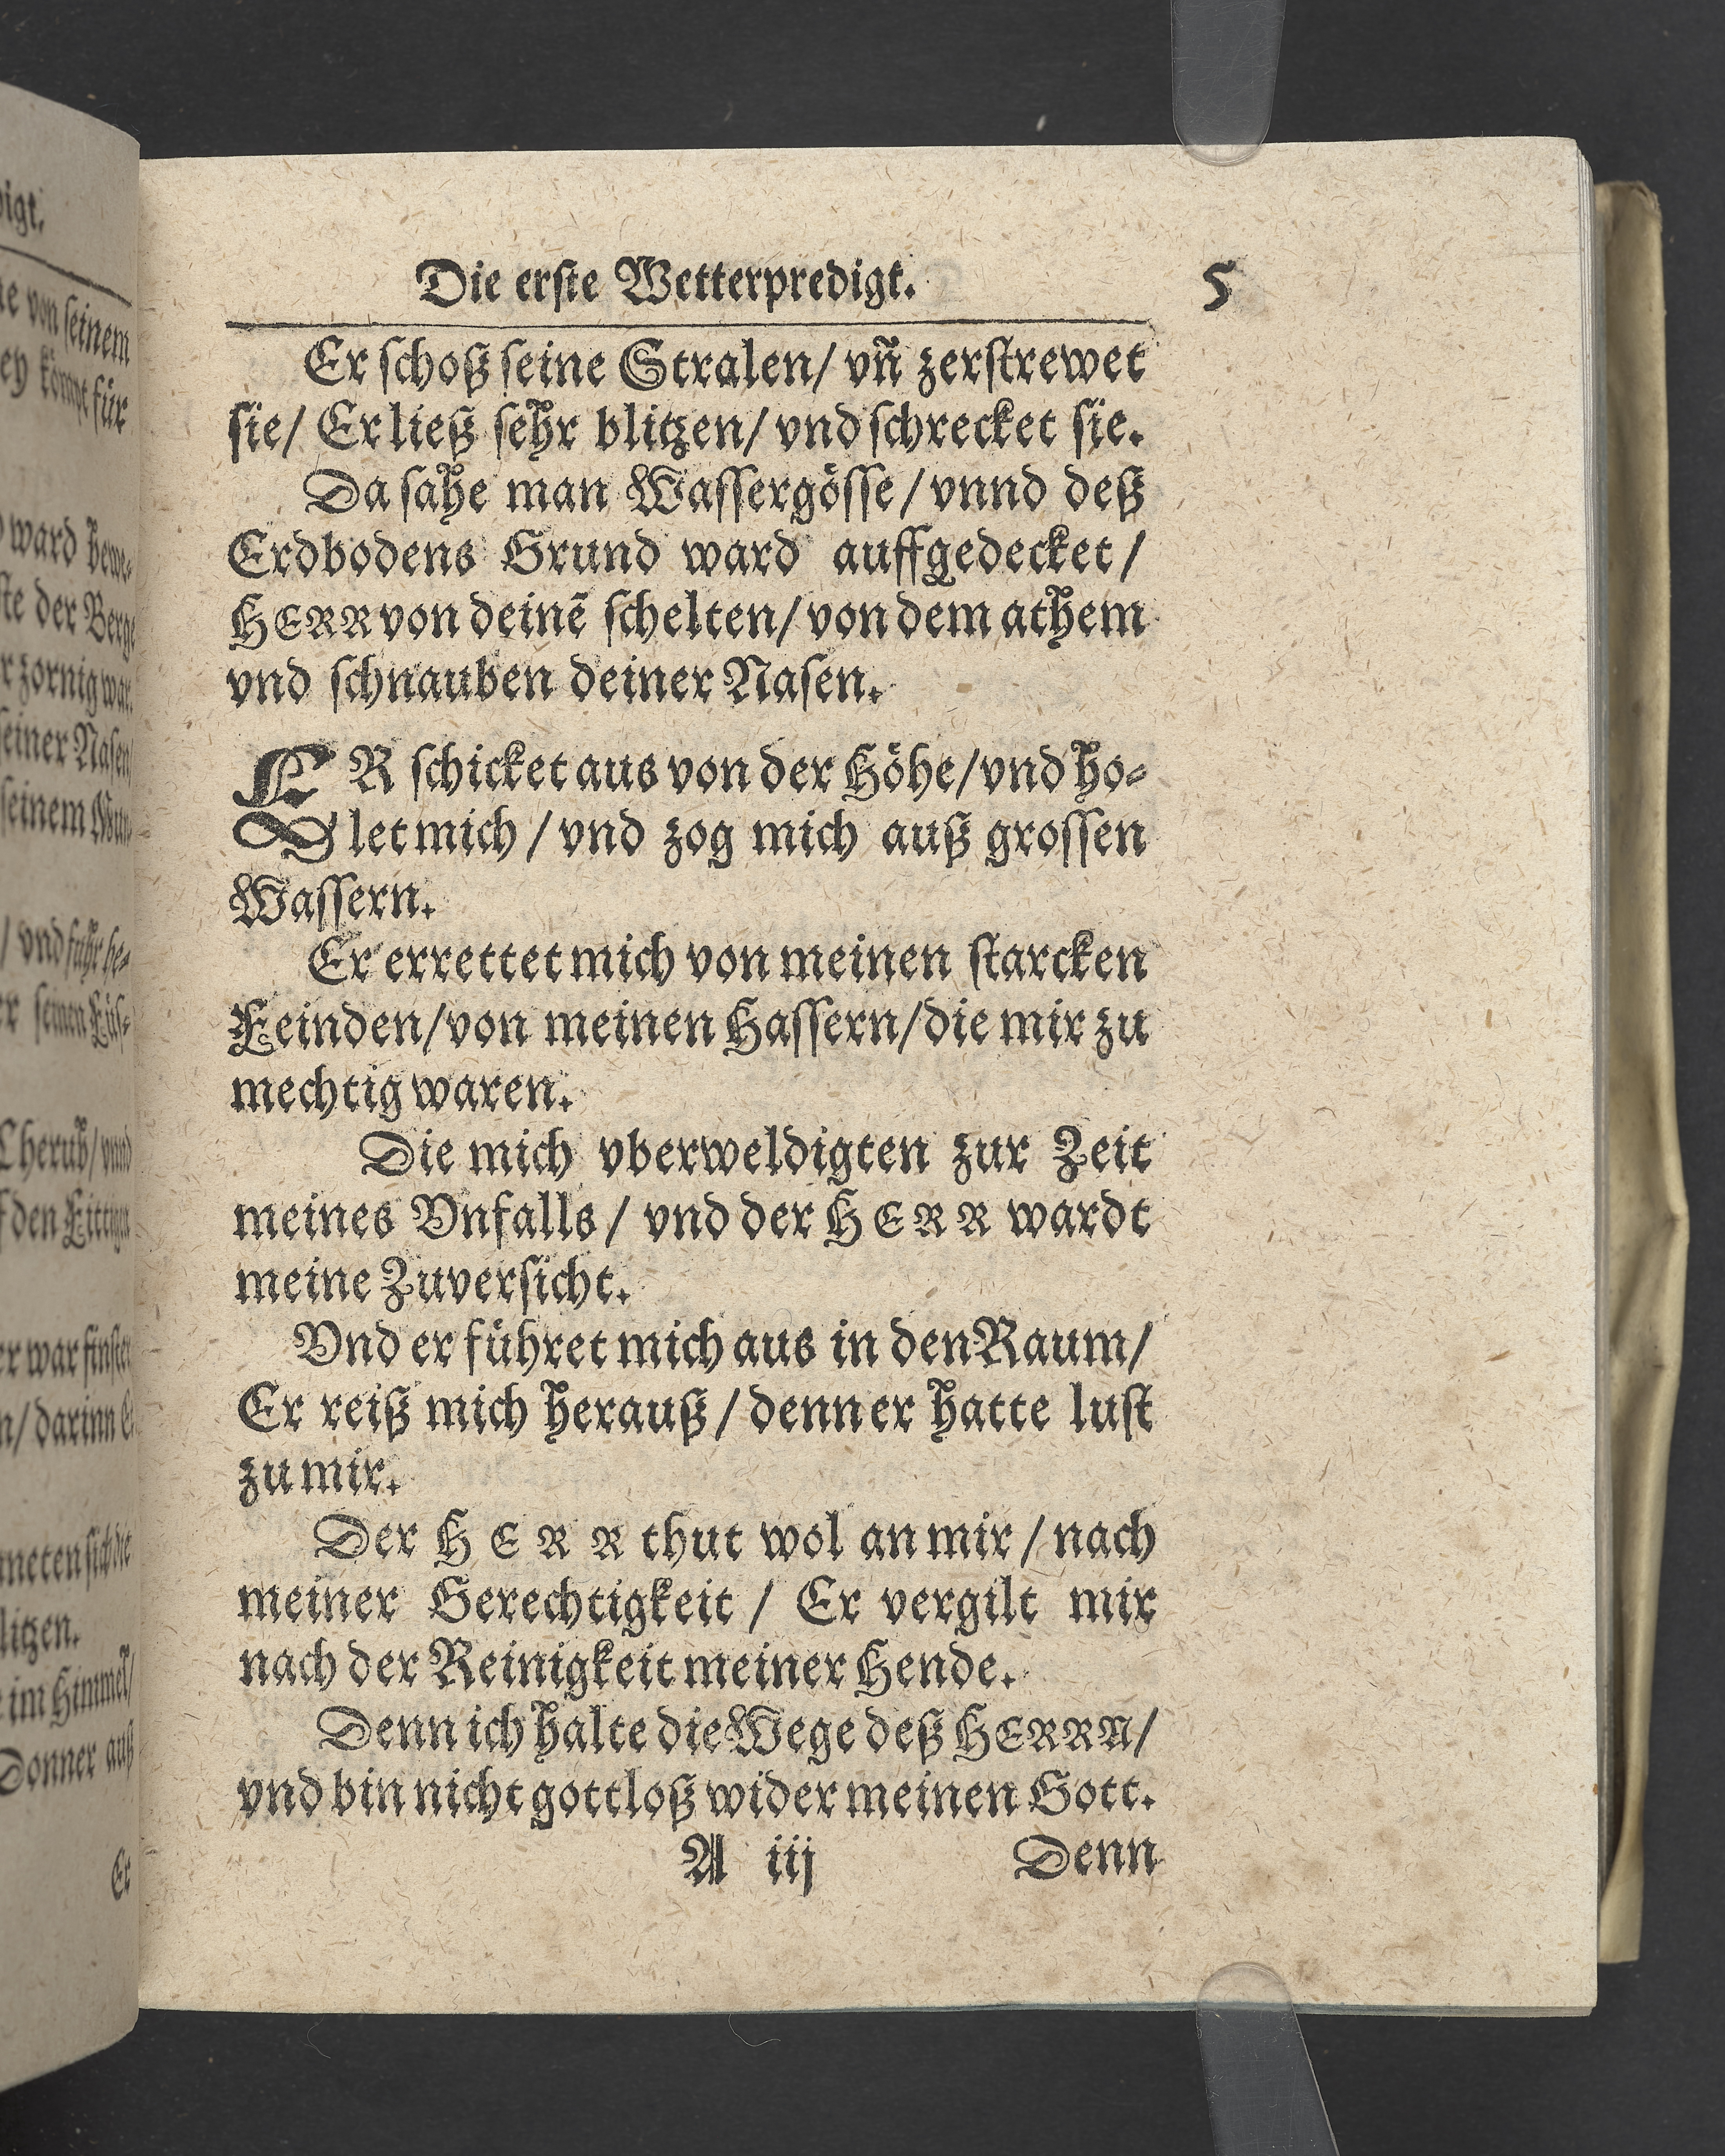 Die erſte Wetterpredigt. 5
Er ſchoß ſeine Stralen/ vñ zerſtrewet
ſie/ Er ließ ſehr blitzen/ vnd ſchrecket ſie.
Da ſahe man Waſſergöſſe/ vnnd deß
Erdbodens Grund ward auffgedecket/
HERR von deinē ſchelten/ von dem athem
vnd ſchnauben deiner Naſen.
ER ſchicket aus von der Höhe/ vnd ho-
let mich/ vnd zog mich auß groſſen
Waſſern.
Er errettet mich von meinen ſtarcken
Feinden/ von meinen Haſſern/ die mir zu
mechtig waren.
Die mich vberweldigten zur Zeit
meines Vnfalls/ vnd der HERR wardt
meine Zuverſicht.
Vnd er führet mich aus in den Raum/
Er reiß mich herauß/ denn er hatte luſt
zu mir.
Der HERR thut wol an mir/ nach
meiner Gerechtigkeit/ Er vergilt mir
nach der Reinigkeit meiner Hende.
Denn ich halte die Wege deß HERRN/
vnd bin nicht gottloß wider meinen Gott.
A iij Denn